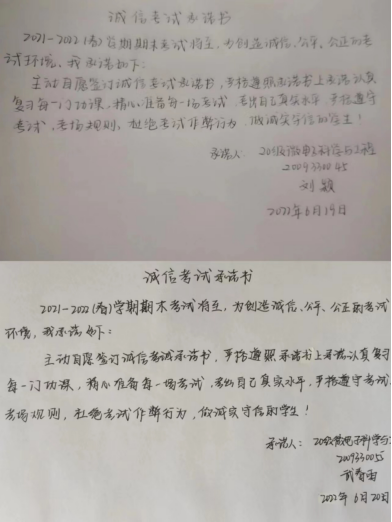 诚信考试承诺书
2021-2022(春)学期期末考试将至，为创造诚信、公平、公正的考
试环境，我承诺如下：
主动自愿签订诚信考试承诺书，严格遵照承诺书上承诺认真
复习每一门功课，精心准备每一场考试，考出自己真实水平，严格遵守
考试、考场规则，杜绝考试作弊行为，做诚实守信的学生！
承诺人：20级微电子科学与工程
2009330045
刘颖
2022年6月19日
诚信考试承诺书
2021-2022(春)学期期末考试将至，为创造诚信、公平、公正的考试
环境，我承诺如下：
主动自愿签订诚信考试承诺书，严格遵照承诺书上承诺认真复习
每一门功课，精心准备每一场考试，考出自己真实水平，严格遵守考试、
考场规则，杜绝考试作弊行为，做诚实守信的学生！
承诺人：20级微电子科学与
200933005
2022年6月20日